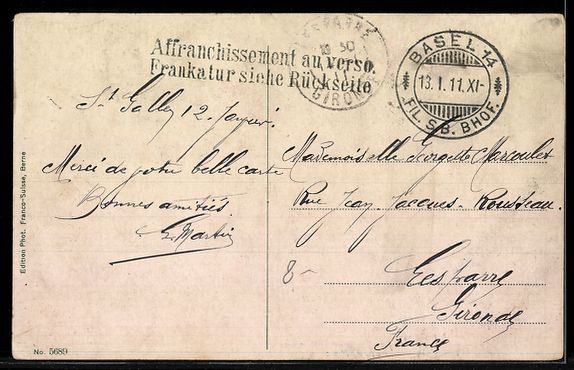 Affranchissement au verso.
Frankatur siehe Rückseite
LESPARRE
10 50
GIRONDE
BASEL 14
13.I.11.XI-
FIL. S.B. BHOF.
St Gallen 12 Janvier.
Merci de votre belle carte
Bonnes amitiés
G. Martin
Mademoiselle Georgette Marcoulet
Rue Jean-Jacques-Rousseau.
Lesparre
Gironde
France
8-
Edition Phot. Franco-Suisse, Berne
No. 5689